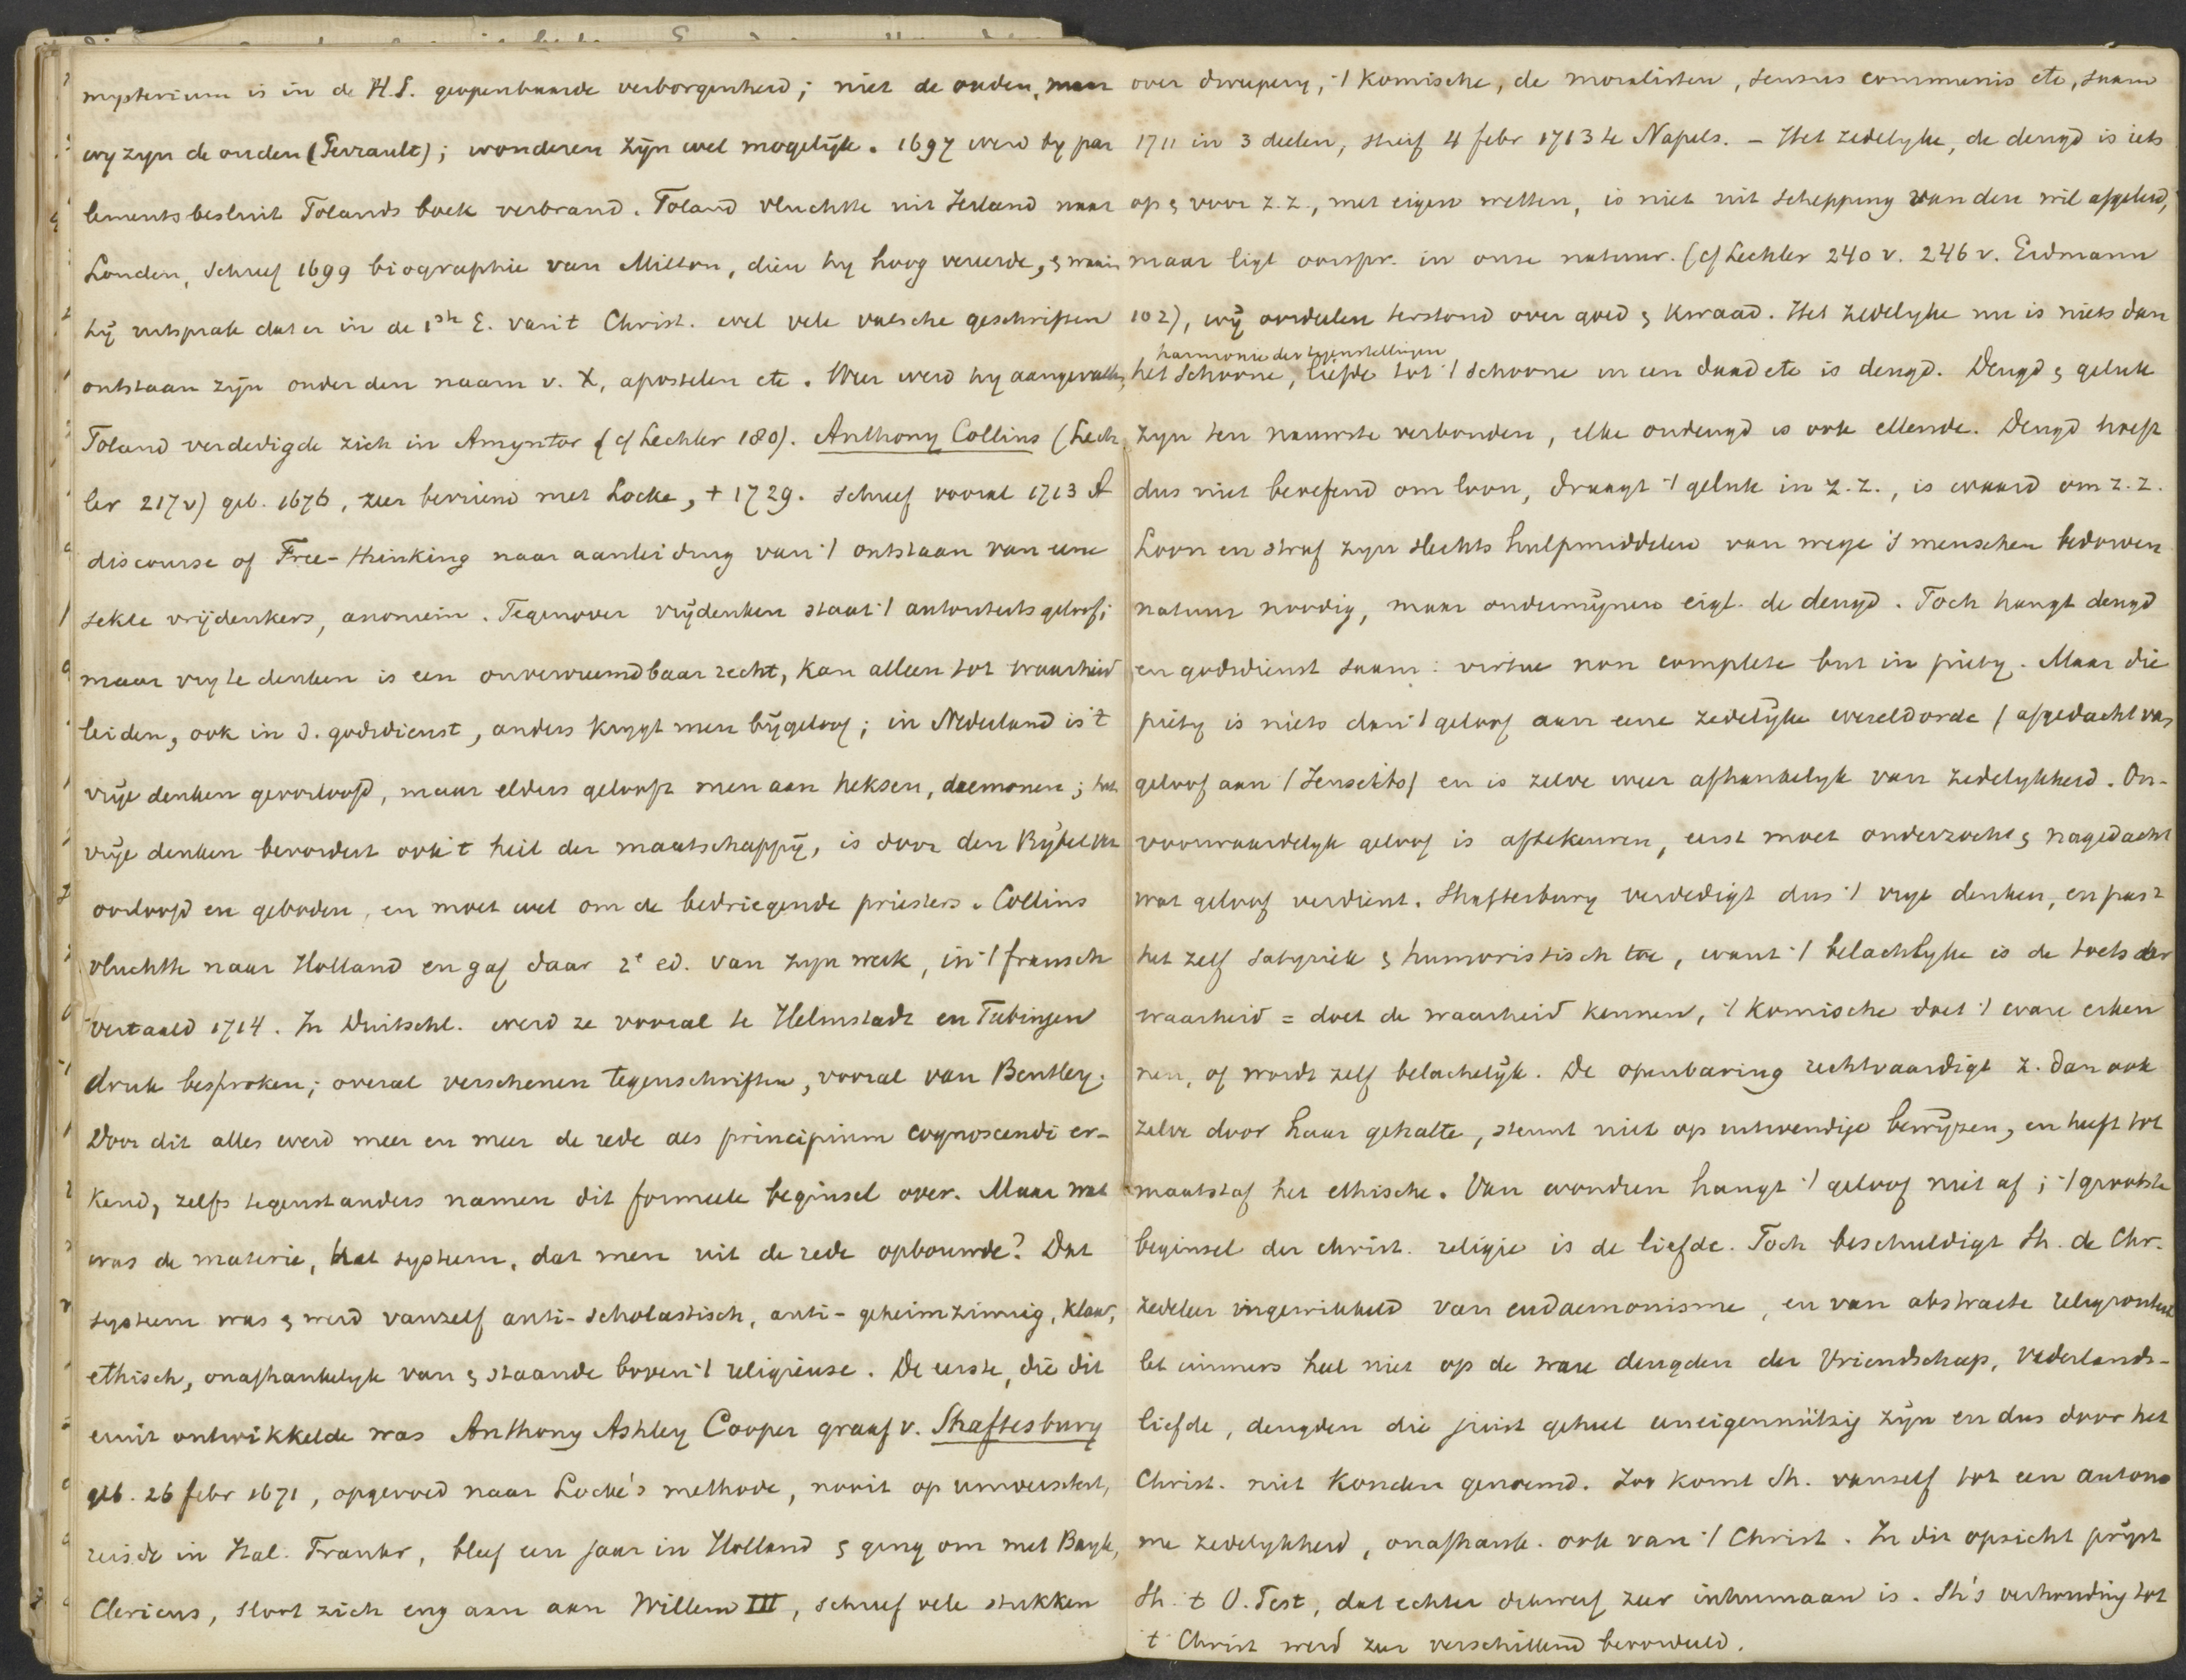 mysterium is in de H.S. geopenbaarde verborgenheid; niet de ouden, maar
wy zyn de ouden (Perrault); wonderen zijn wel mogelijk. 1697 werd by par
lementsbesluit Tolands boek verbrand. Toland vluchtte uit Ierland naar
Londen, schreef 1699 biographie van Milton, dien hy hoog vereerde, & waarin
hij uitsprak dat er in de 1ste E. van 't Christ. wel vele valsche geschriften
ontstaan zijn onder den naam v. X, apostelen etc. Weer werd hy aangevallen,
Toland verdedigde zich in Amyntor (cf Lechler 180). Anthony Collins (Lech
ler 217v) geb. 1676, zeer bevriend met Locke, + 1729. schreef vooral 1713 A
discourse of Free-thinking naar aanleiding van 't ontstaan van eene
sekte vrijdenkers, anoniem. Tegenover vrijdenken staat 't autoriteitsgeloof;
maar vry te denken is een onvervreemdbaar recht, kan alleen tot waarheid
leiden, ook in d. godsdienst, anders krygt men bijgeloof; in Nederland is 't
vrije denken geoorloofd, maar elders gelooft men aan heksen, daemonen; het
vrije denken bevordert ook 't heil der maatschappij, is door den Bijbel ver
oorloofd en geboden, en moet wel om de bedriegende priesters. Collins
vluchtte naar Holland en gaf daar 2e ed. van zyn werk, in 't fransch
vertaald 1714. In Duitschl. werd ze vooral te Helmstadt en Tubingen
druk besproken; overal verschenen tegenschriften, vooral van Bentley.
Door dit alles werd meer en meer de rede als principium cognoscendi er-
kend, zelfs tegenstanders namen dit formeele beginsel over. Maar wat
was de materie, het systeem, dat men uit de rede opbouwde? Dat
systeem was & werd vanzelf anti-scholastisch, anti-geheimzinnig, klaar,
ethisch, onafhankelyk van & staande boven 't religieuse. De eerste, die dit
eruit ontwikkelde was Anthony Ashley Cooper graaf v. Shaftesbury
geb. 26 febr 1671, opgevoed naar Locke's methode, nooit op universiteit,
reisde in Ital. Frankr, bleef een jaar in Holland & ging om met Bayle,
Clericus, sloot zich eng aan aan Willem III, schreef vele stukken
over dweepery, 't komische, de moralisten, sensus communis etc, saam
1711 in 3 deelen, stierf 4 febr 1713 te Napels. – Het zedelyke, de deugd is iets
op & voor z.z., met eigen wetten, is niet uit schepping van den wil afgeleid,
maar ligt oorspr. in onze natuur. (cf Lechler 240 v. 246 v. Erdmann
102), wij oordeelen terstond over goed & kwaad. Het zedelyke nu is niets dan
harmonie der tegenstellingen
het schoone, liefde tot 't schoone in een daad etc is deugd. Deugd & geluk
zyn ten nauwste verbonden, elke ondeugd is ook ellende. Deugd hoeft
dus niet beoefend om loon, draagt 't geluk in z.z., is waard om z.z.
Loon en straf zyn slechts hulpmiddelen van wege 's menschen bedorven
natuur noodig, maar ondermijnen eigl. de deugd. Toch hangt deugd
en godsdienst saam: virtue non complete but in piety. Maar die
piety is niets dan 't geloof aan eene zedelijke wereldorde (afgedacht van
geloof aan 't Jenseits) en is zelve weer afhankelyk van zedelykheid. On-
voorwaardelyk geloof is aftekeuren, eerst moet onderzocht & nagedacht
wat geloof verdient. Shaftesbury verdedigt dus 't vrye denken, en past
het zelf satyriek & humoristisch toe, want 't belachlyke is de toets der
waarheid = doet de waarheid kennen, 't komische doet 't ware erken
nen, of wordt zelf belachelijk. De openbaring rechtvaardigt z. dan ook
zelve door haar gehalte, steunt niet op uitwendige bewijzen, en heeft tot
maatstaf het ethische. Van wonderen hangt 't geloof niet af; 't grootste
beginsel der christ. religie is de liefde. Toch beschuldigt Sh. de Chr.
zedeleer ingewikkeld van eudaemonisme, en van abstracte religiositeit
let immers heel niet op de ware deugden der Vriendschap, Vaderlands-
liefde, deugden die juist geheel uneigennützig zijn en dus door het
Christ. niet konden genoemd. Zoo komt Sh. vanzelf tot een autono
me zedelykheid, onafhank. ook van 't Christ. In dit opzicht prijst
Sh. 't O. Test, dat echter dikwerf zeer inhumaan is. Sh's verhouding tot
't Christ werd zeer verschillend beoordeeld.